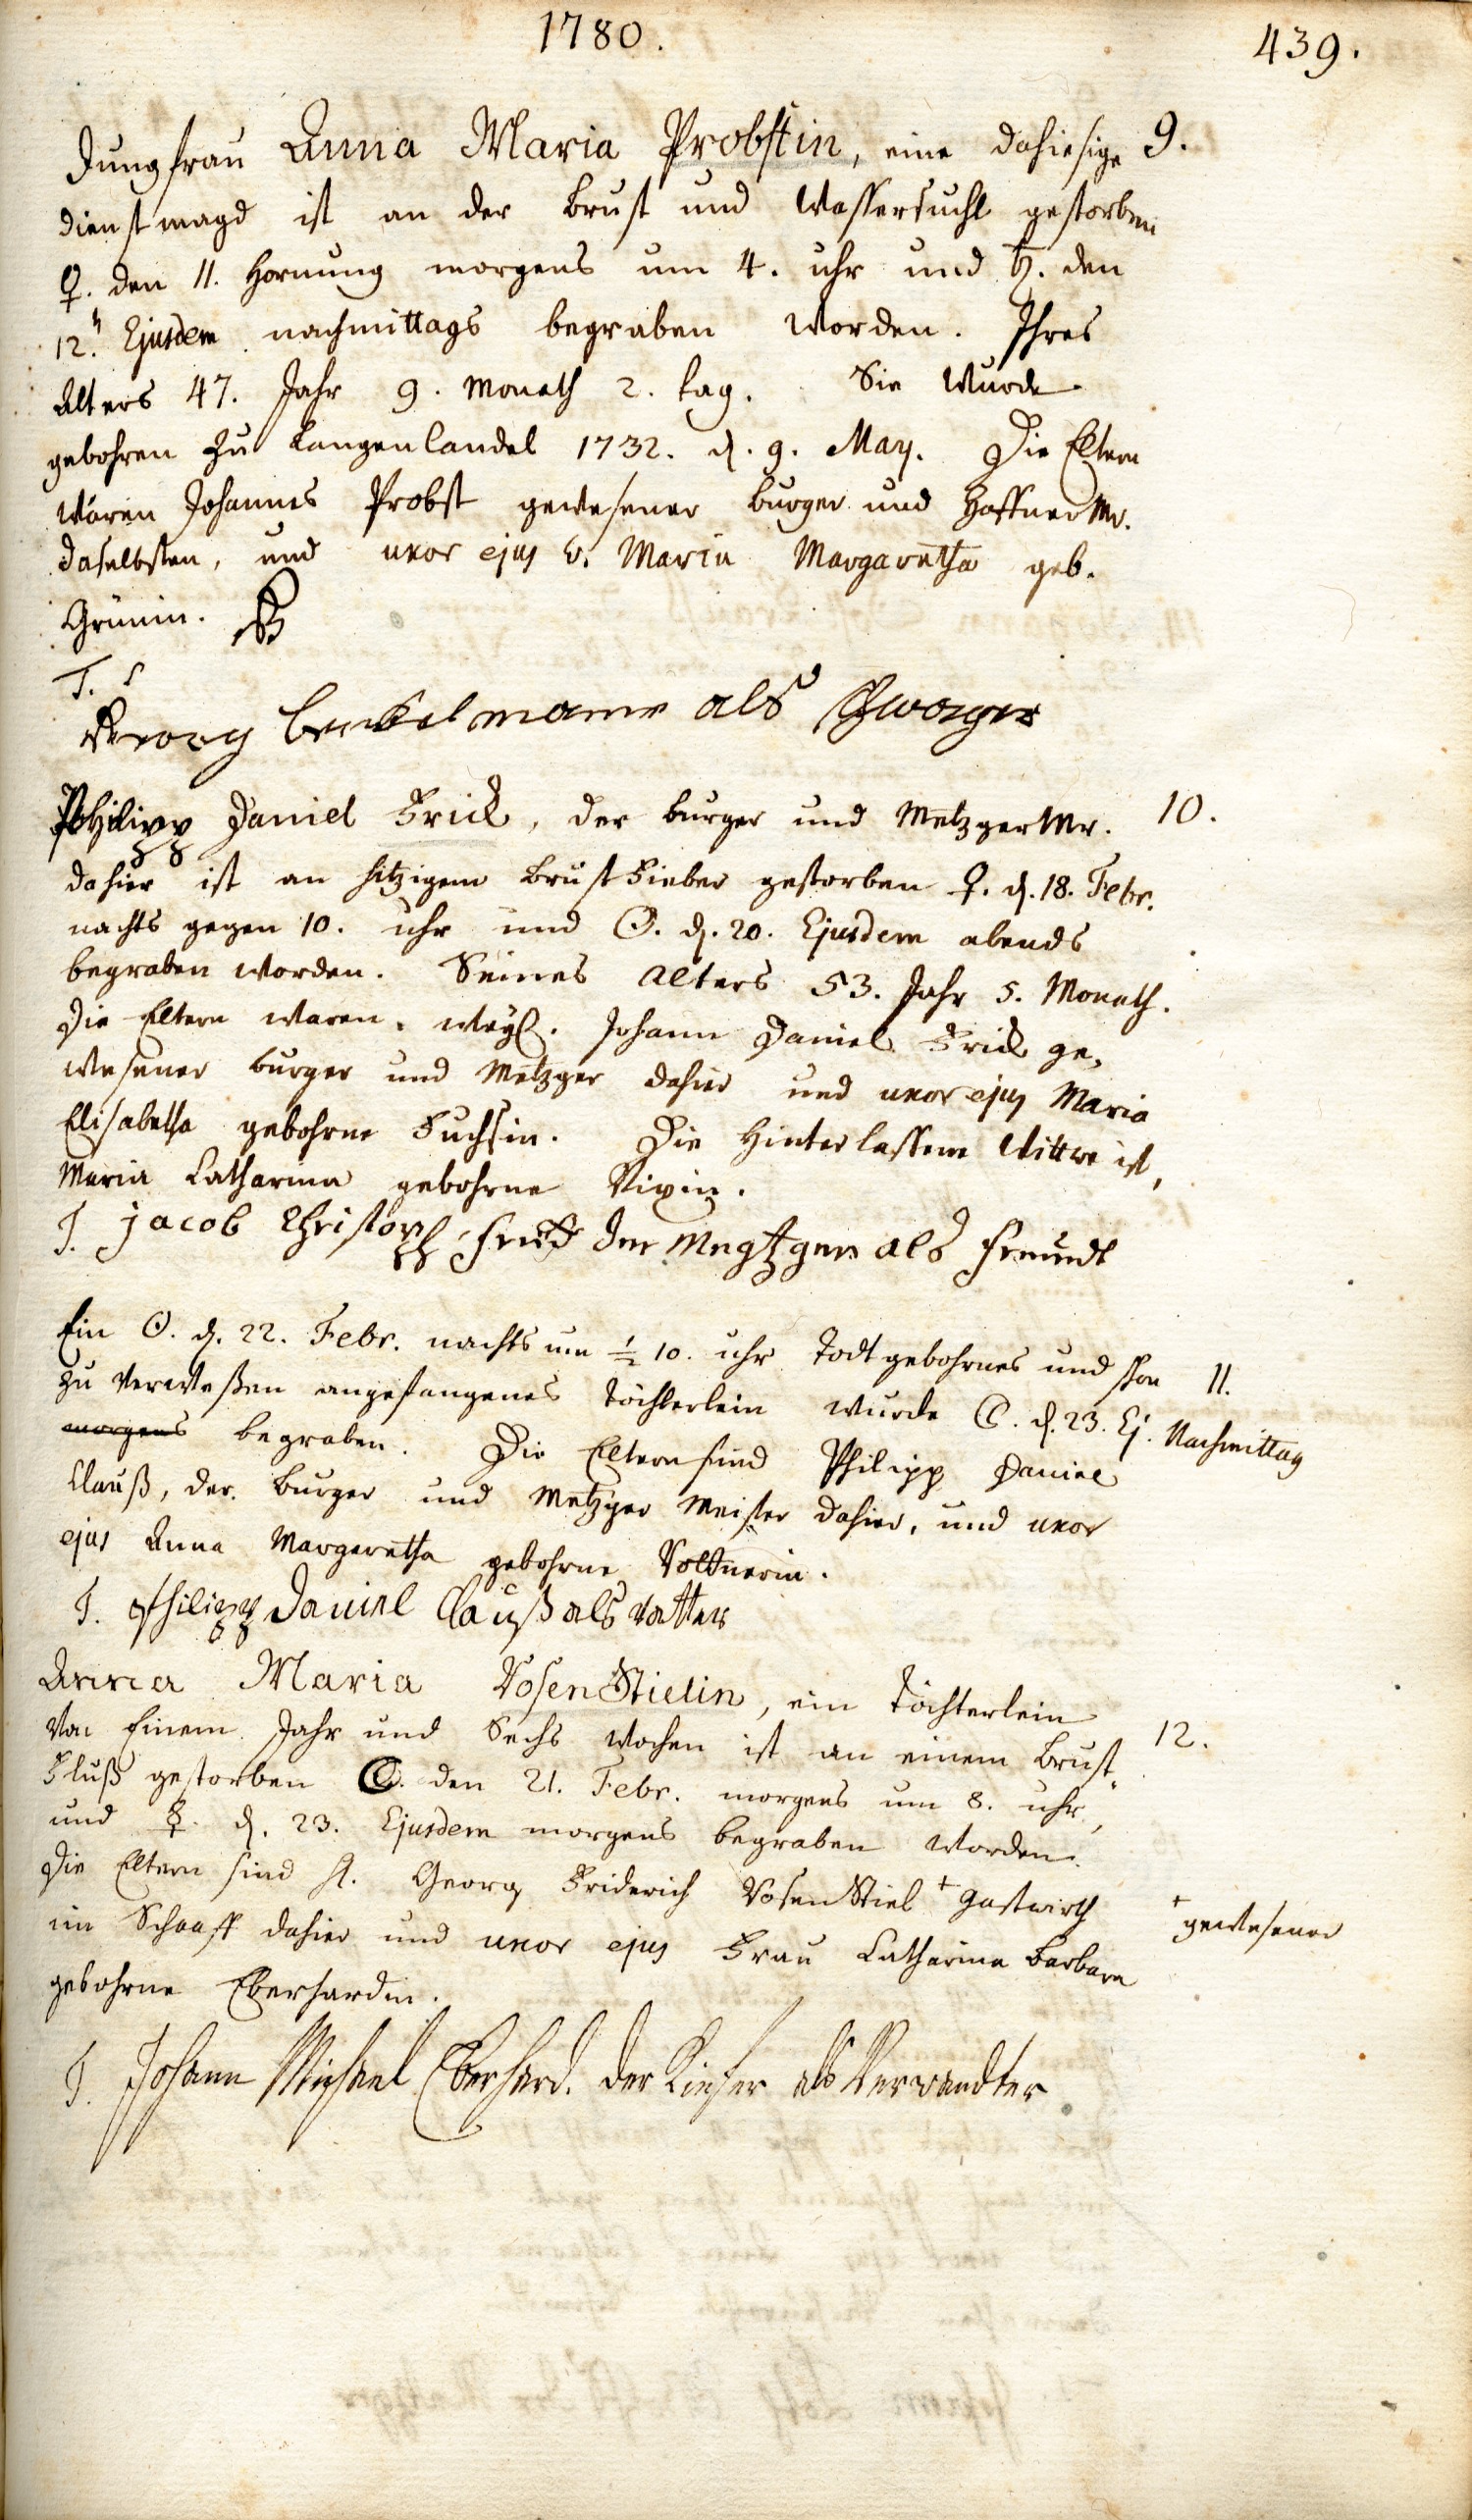 1780.
439.
Jungfrau Anna Maria Probstin, eine dahiesige 9.
dienstmagd ist an der Brust und Wassersucht gestorben
♀. den 11. Hornung morgens um 4. uhr und ♄. den
12. Ejusdem nachmittags begraben worden. Ihres
Alters 47. Jahr 9. Monath 2. tag. Sie wurde
gebohren zu Langenlandel 1732. d. 9. May. Die Eltern
waren Johannes Probst gewesener burger und Haffner Mr.
daselbsten, und uxor ejus Maria Margaretha geb.
Grünin.
T. S
Georg als schwager
Philipp Daniel Frick, der burger und Metzger Mr. 10.
dahier ist an hitzigem Brust Fieber gestorben ♀. d. 18. Febr.
nachts gegen 10. uhr und ☉. d. 20. Ejusdem abends
begraben worden. Seines alters 53. Jahr 5. Monath.
Die Eltern waren. weyl. Johann Daniel Frick ge-
wesener burger und Metzger dahier und uxor ejus Maria
Elisabetha gebohrne Fuchsin. Die Hinterlassene Wittwe ist,
Maria Catharina gebohrne
T. jacob Christoph frick der Megtzger als freundt
Ein ☉. d. 22. Febr. nachts um ½ 10. uhr todtgebohrnes und schon 11.
zu verwesen angefangenes töchterlein wurde d. 23. Ej. Nachmittag
morgens begraben. Die Eltern sind Philipp Daniel
Clauß, der burger und Metzger Meister dahier, und uxor
ejus Anna Margaretha gebohrne Voltnerin.
T. Philipp Daniel Clauß als vatter
Anna Maria RosenStielin, ein töchterlein
von Einem Jahr und Sechs Wochen ist an einem Brust- 12.
Fluß gestorben ☾. den 21. Febr. morgens um 8. uhr,
und ☿. d. 23. Ejusdem morgens begraben worden.
Die Eltern sind H. Georg Friderich RosenStiel + Gastwirth
+ gewesener
im Schaaff dahier und uxor ejus Frau Catharina Barbara
gebohrne Eberhardin.
T. Johann Michael Eberhard. der Kiefer als Verwandter